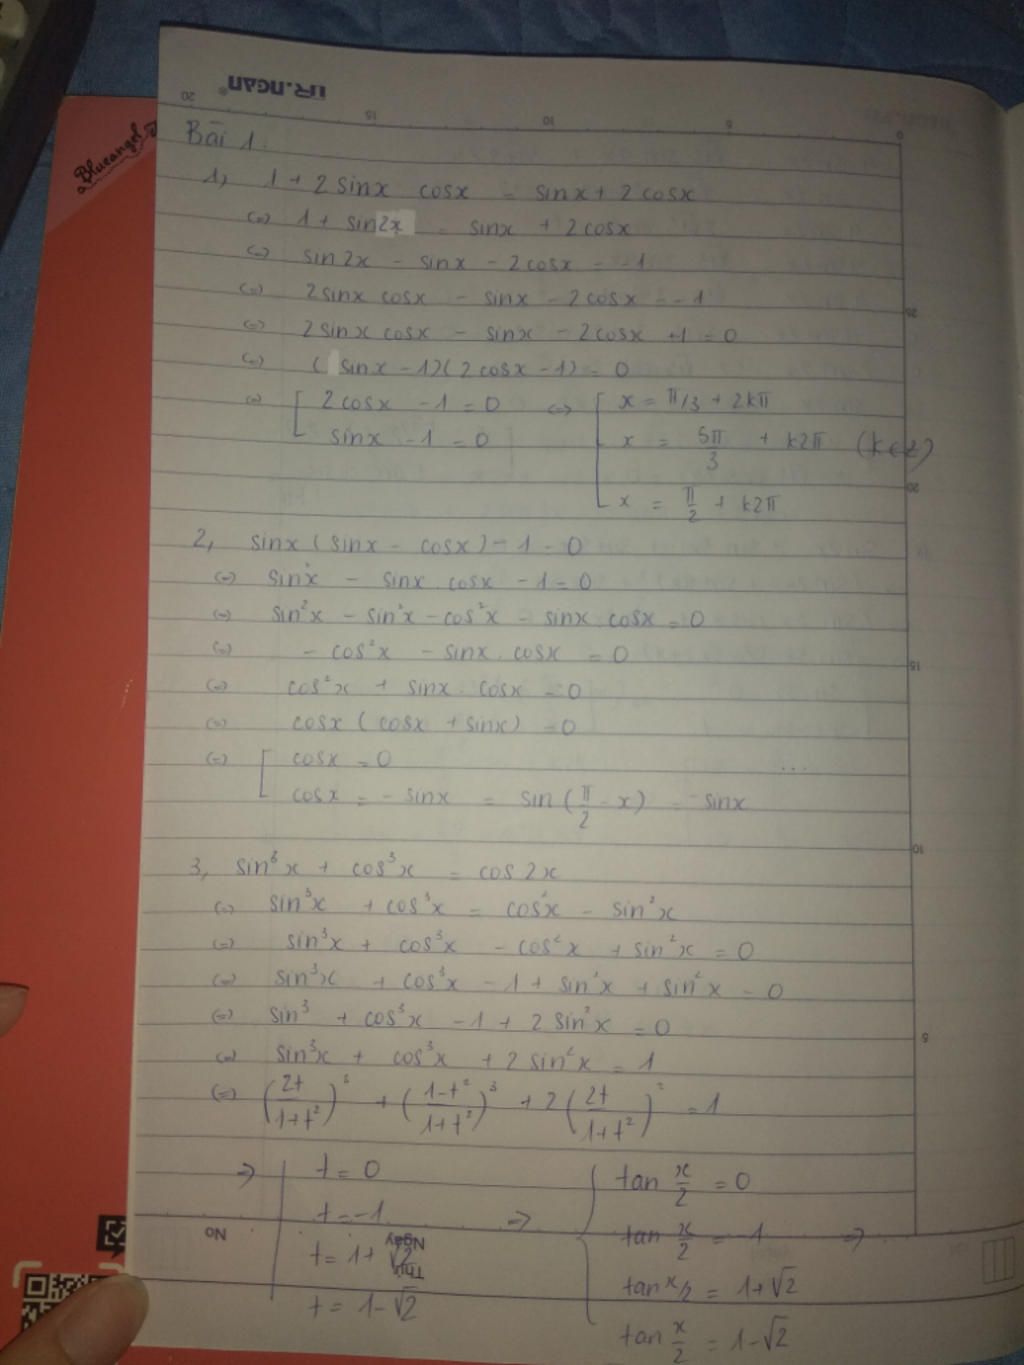 Blueangel
UR.ngan
20 15 10 5 0
Bài 1.
1, 1 + 2 sinx cosx = sinx + 2 cosx
(=) 1 + sin2x = sinx + 2 cosx
(=) sin 2x - sinx - 2 cosx = -1
(=) 2 sinx cosx - sinx - 2 cosx = -1
(=) 2 sinx cosx - sinx - 2 cosx + 1 = 0
(=) ( sinx - 1)( 2 cosx - 1) = 0
(=) [ 2 cosx - 1 = 0 <=> [ x = π/3 + 2kπ
sinx - 1 = 0 x = 5π/3 + k2π (k∈Z)
x = π/2 + k2π
2, sinx ( sinx - cosx ) - 1 = 0
(=) sin²x - sinx . cosx - 1 = 0
(=) sin²x - sin²x - cos²x - sinx . cosx = 0
(=) - cos²x - sinx . cosx = 0
(=) cos²x + sinx . cosx = 0
(=) cosx ( cosx + sinx ) = 0
(=) [ cosx = 0 ...
cosx = - sinx = sin ( π/2 - x ) = - sinx
3, sin³x + cos³x = cos 2x
(=) sin³x + cos³x = cos²x - sin²x
(=) sin³x + cos³x - cos²x + sin²x = 0
(=) sin³x + cos³x - 1 + sin²x + sin²x = 0
(=) sin³ + cos³x - 1 + 2 sin²x = 0
(=) sin³x + cos³x + 2 sin²x = 1
(=) (2t/1+t²)³ + (1-t²/1+t²)³ + 2 (2t/1+t²)² = 1
=> t = 0 tan x/2 = 0
t = -1 => tan x/2 = -1 =>
t = 1 + √2 tan x/2 = 1 + √2
t = 1 - √2 tan x/2 = 1 - √2
No
Ngày
Thứ
25
20
15
10
5